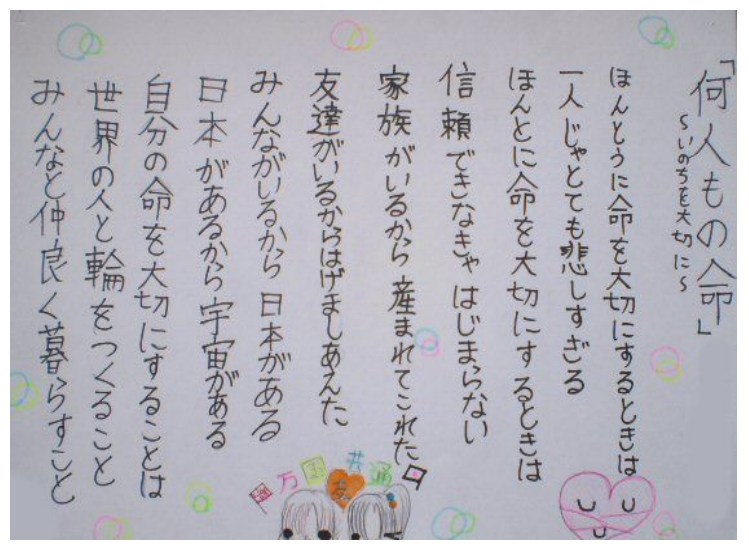 「何人もの命」
～いのちを大切に～
ほんとうに命を大切にするときは
一人じゃとても悲しすぎる
ほんとに命を大切にするときは
信頼できなきゃはじまらない
家族がいるから産まれてこれた
友達がいるからはげましあえた
みんながいるから日本がある
日本があるから宇宙がある
自分の命を大切にすることは
世界の人と輪をつくること
みんなと仲良く暮らすこと
万国共通
友